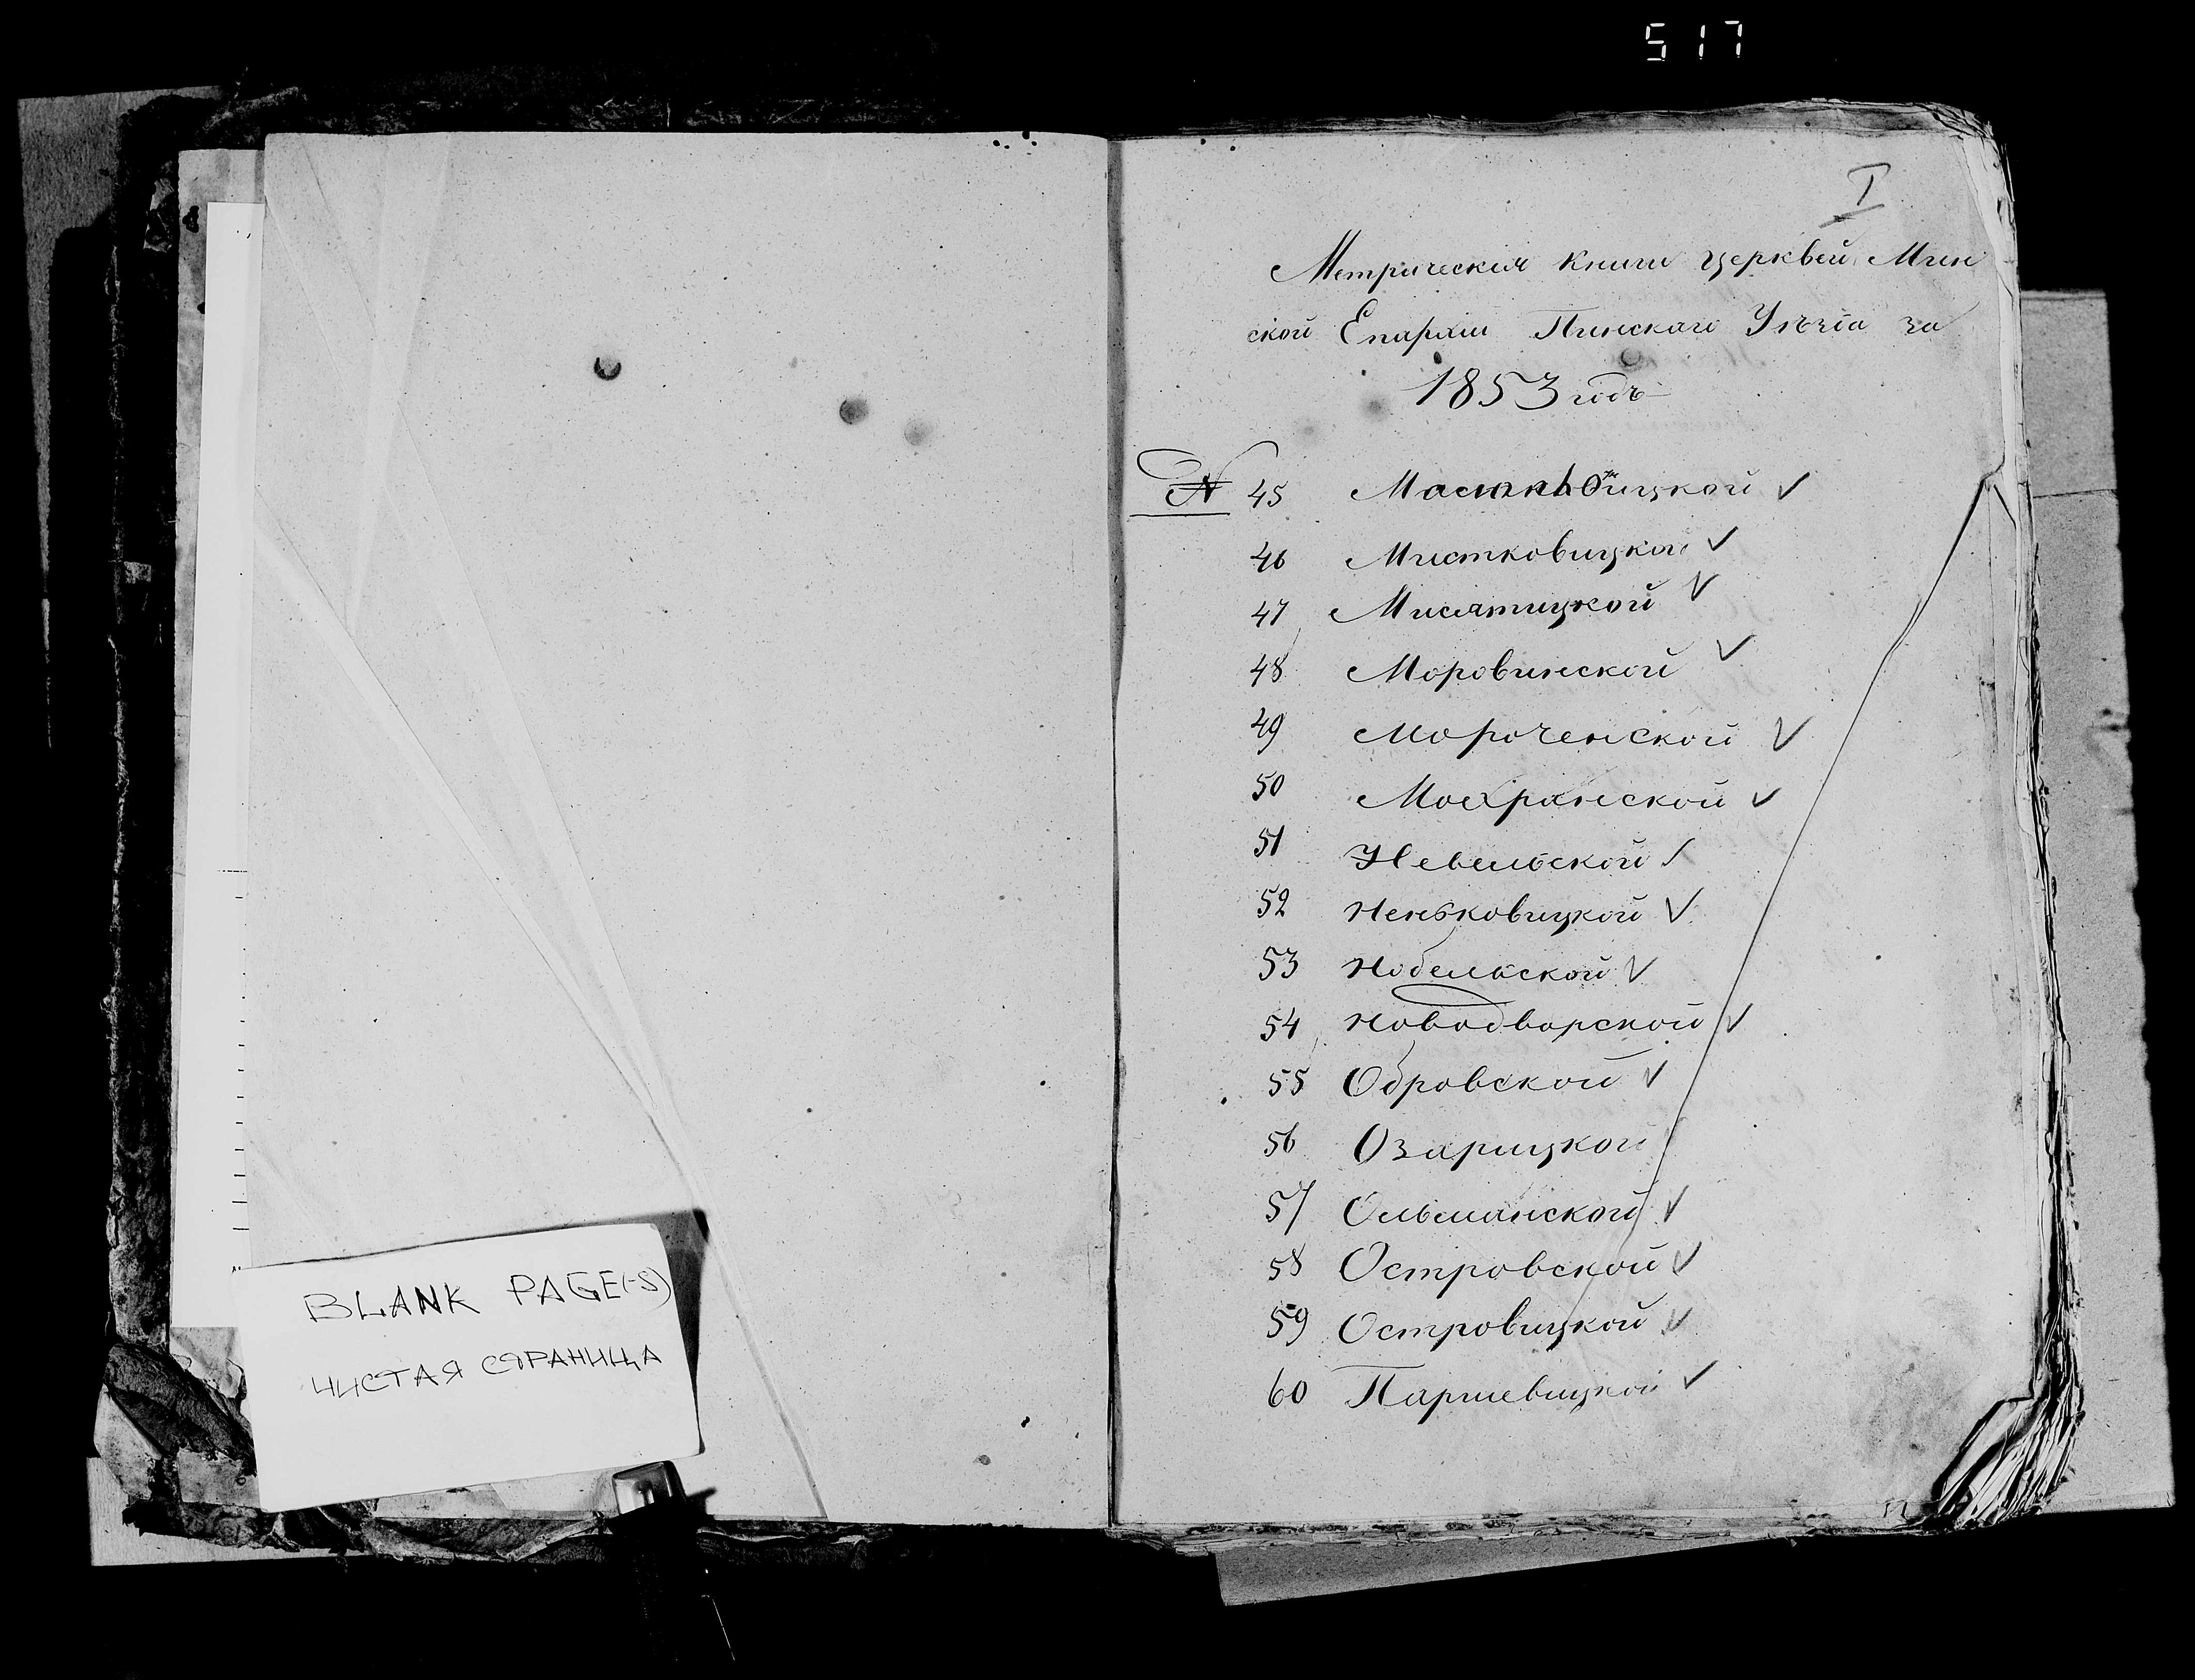 517
I
Метрическія книги церквей Мин
ской Епархіи Пинскаго Уѣзда за
1853 годъ
N 45 ✓
46 Мистковицкой ✓
47 Мисятицкой ✓
48 Моровинской ✓
49 Мороченской ✓
50 Мохранской ✓
51 Невельской ✓
52 Неньковицкой ✓
53 Нобельской ✓
54 Новодворской ✓
55 Обровской ✓
56 Озарицкой
57 Ольманской ✓
58 Островской ✓
59 Островицкой ✓
60 Паршевицкой ✓
BLANK PAGE(-S)
ЧИСТАЯ СТРАНИЦА